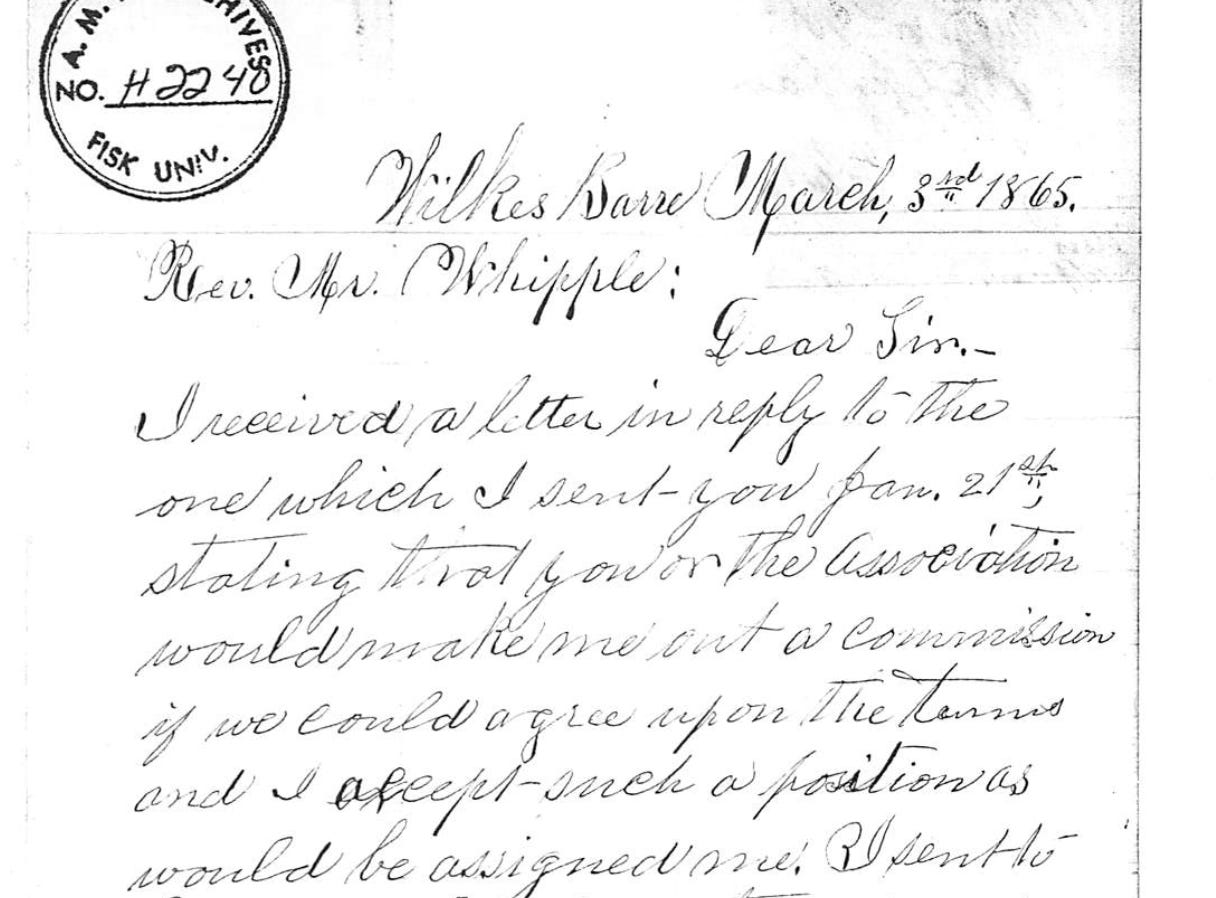 A. M. A. ARCHIVES
NO. H2240
FISK UNIV.
Wilkes Barre March, 3rd 1865.
Rev. Mr. Whipple:
Dear Sir.-
I received a letter in reply to the
one which I sent you Jan. 21st,
stating that you or the Association
would make me out a commission
if we could agree upon the terms
and I accept such a position as
would be assigned me. I sent to